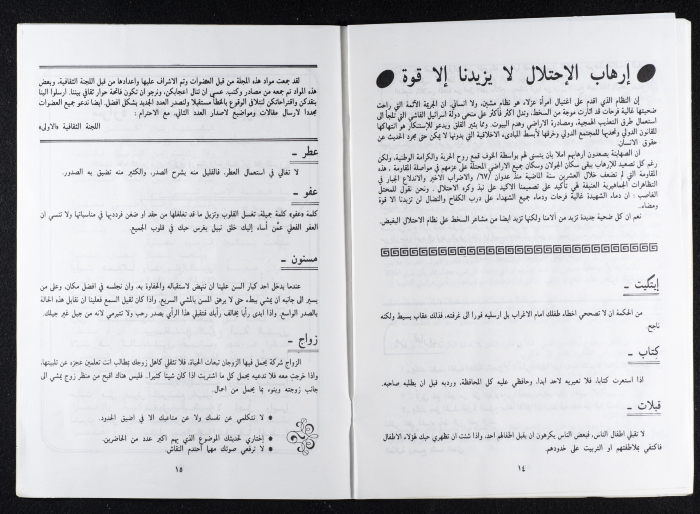 إرهاب الإحتلال لا يزيدنا إلا قوة
ان النظام الذي اقدم على اغتيال امرأة عزلاء هو نظام مشين، ولا انساني. ان الجريمة الآثمة التي راحت
ضحيتها غالية فرحات قد اثارت موجة من السخط، وتدل اكثر فأكثر على منحى دولة اسرائيل الفاشي التي تلجأ الى
استعمال طرق التعذيب الهمجية، ومصادرة الاراضي وهدم البيوت. ومما يثير القلق ويدعو للإستنكار هو انتهاكها
للقانون الدولي وتحديها للمجتمع الدولي وخرقها لأبسط المبادىء الاخلاقية التي بدونها لا يمكن حتى مجرد الحديث عن
حقوق الانسان
ان الصهاينة يصعدون أرهابهم املا بان يتسنى لهم بواسطة الخوف قمع روح الحرية والكرامة الوطنية. ولكن
رغم كل تصعيد للإرهاب يبقى سكان الجولان وسكان جميع الاراضي المحتلة على عزمهم في مواصلة المقاومة. هذه
المقاومة التي لم تضعف خلال العشرين سنة الماضية منذ عدوان /٦٧/ والاضراب الاخير والاندلاع الجبار في
التظاهرات الجماهيرية العنيفة فهي تأكيد على تصميمنا الاكيد على نبذ وكره الاحتلال. ونحن نقول للمحتل
الغاصب: ان دماء الشهيدة غالية فرحات ودماء جميع الشهداء على درب الكفاح والنضال لن تزيدنا الا قوة
ومضاء..
نعم ان كل ضحية جديدة تزيد من آلامنا ولكنها تزيد ايضا من مشاعر السخط على نظام الاحتلال البغيض.
إيتيكيت -
من الحكمة ان لا تصححي اخطاء طفلك امام الاغراب بل ارسليه فورا الى غرفته، فذلك عقاب بسيط ولكنه
ناجح
كتاب -
اذا استعرت كتابا، فلا تعيريه لاحد ابدا، وحافظي عليه كل المحافظة، ورديه قبل ان يطلبه صاحبه.
قبلات -
لا تقبلي اطفال الناس، فبعض الناس يكرهون ان يقبل اطفالهم احد، واذا شئت ان تظهري حبك لهؤلاء الاطفال
فاكتفي بملاطفتهم او التربيت على خدودهم.
١٤
لقد جمعت مواد هذه المجلة من قبل العضوات وتم الاشراف عليها واعدادها من قبل اللجنة الثقافية. وبعض
هذه المواد تم جمعه من مصادر وكتب. عسى ان تنال اعجابكن. ونرجو ان تكون فاتحة حوار ثقافي بيننا. ارسلوا الينا
بنقدكن واقتراحاتكن لنتلافى الوقوع بالخطأ مستقبلا ولنصدر العدد الجديد بشكل افضل. ايضا ندعو جميع العضوات
مجددا لارسال مقالات ومواضيع لاصدار العدد الثاني. مع الاحترام:
اللجنة الثقافية «الاولى»
عطر -
لا تغالي في استعمال العطر، فالقليل منه يشرح الصدر، والكثير منه تضيق به الصدور.
عفو -
كلمة «عفو» كلمة جميلة. تغسل القلوب وتزيل ما قد تغلغلها من حقد او ضغن فردديها في مناسباتها ولا تنسي ان
العفو الفعلي عمَّن أساء إليك خلق نبيل يغرس حبك في قلوب الجميع.
مسنون -
عندما يدخل احد كبار السن علينا ان ننهض لاستقباله والحفاوة به، وان نجلسه في افضل مكان، وعلى من
يسير الى جانبه ان يمشي ببطء حتى لا يرهق المسن بالمشي السريع. واذا كان ثقيل السمع فعلينا ان نقابل هذه الحالة
بالصدر الواسع. واذا ابدى رأيا يخالف رأيك فتقبلي هذا الرأي بصدر رحب ولا تتبرمي لانه من جيل غير جيلك.
زواج -
الزواج شركة يحمل فيها الزوجان تبعات الحياة. فلا تثقلي كاهل زوجك بمطالب انت تعلمين عجزه عن تلبيتها.
واذا خرجت معه فلا تدعيه يحمل كل ما اشتريت اذا كان شيئا كثيرا. فليس هناك اقبح من منظر زوج يمشي الى
جانب زوجته وينوء بما يحمل من احمال.
● لا تتكلمي عن نفسك ولا عن متاعبك الا في اضيق الحدود.
● إختاري لحديثك الموضوع الذي يهم اكبر عدد من الحاضرين.
● لا ترفعي صوتك مهما أحتدم النقاش.
١٥